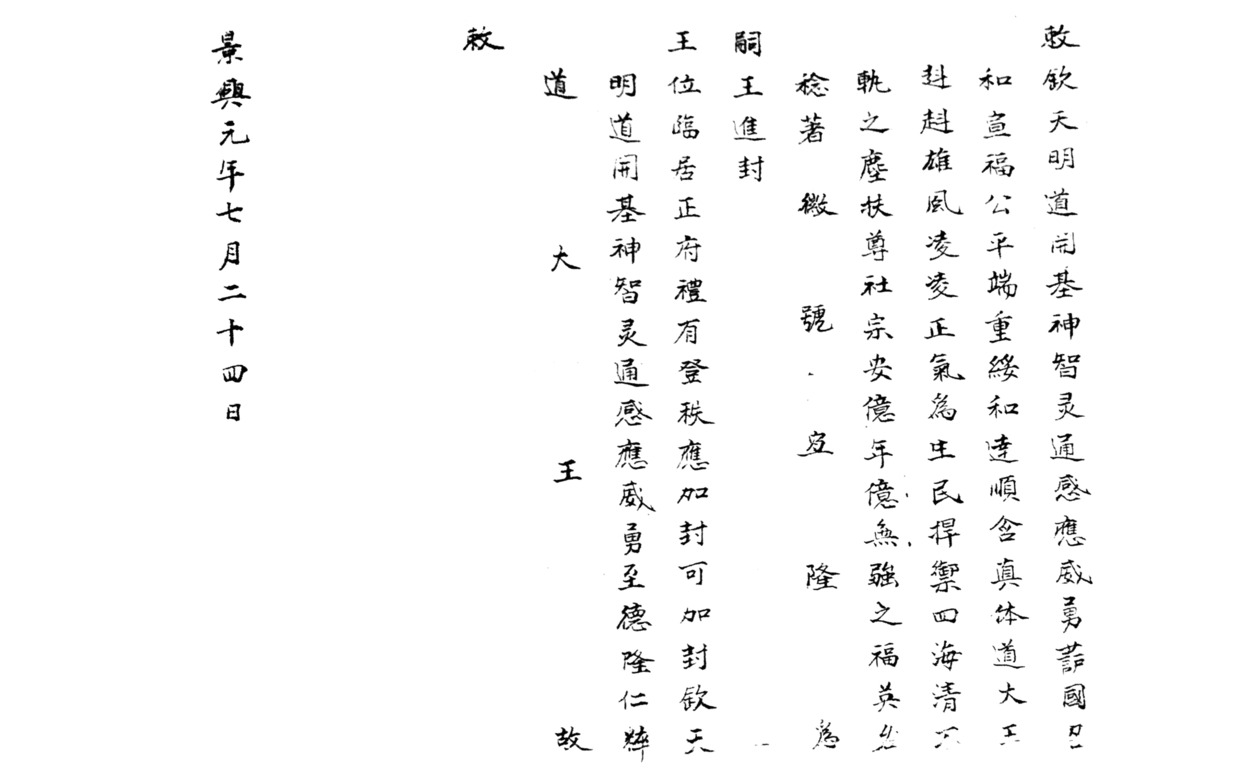 敕欽天明道開基神智灵通感應威勇諎國
和宣福公平端重綏和達順含真体道大王
赳赳雄風凌凌正氣為生民捍禦四海清
軌之塵扶尊社宗安億年億無強之福英
稔著徽號宜隆為
嗣王進封
王位臨居正府禮有登秩應加封可加封欽天
明道開基神智灵通感應威勇至德隆仁粹
道大王故
敕
景興元年七月二十四日